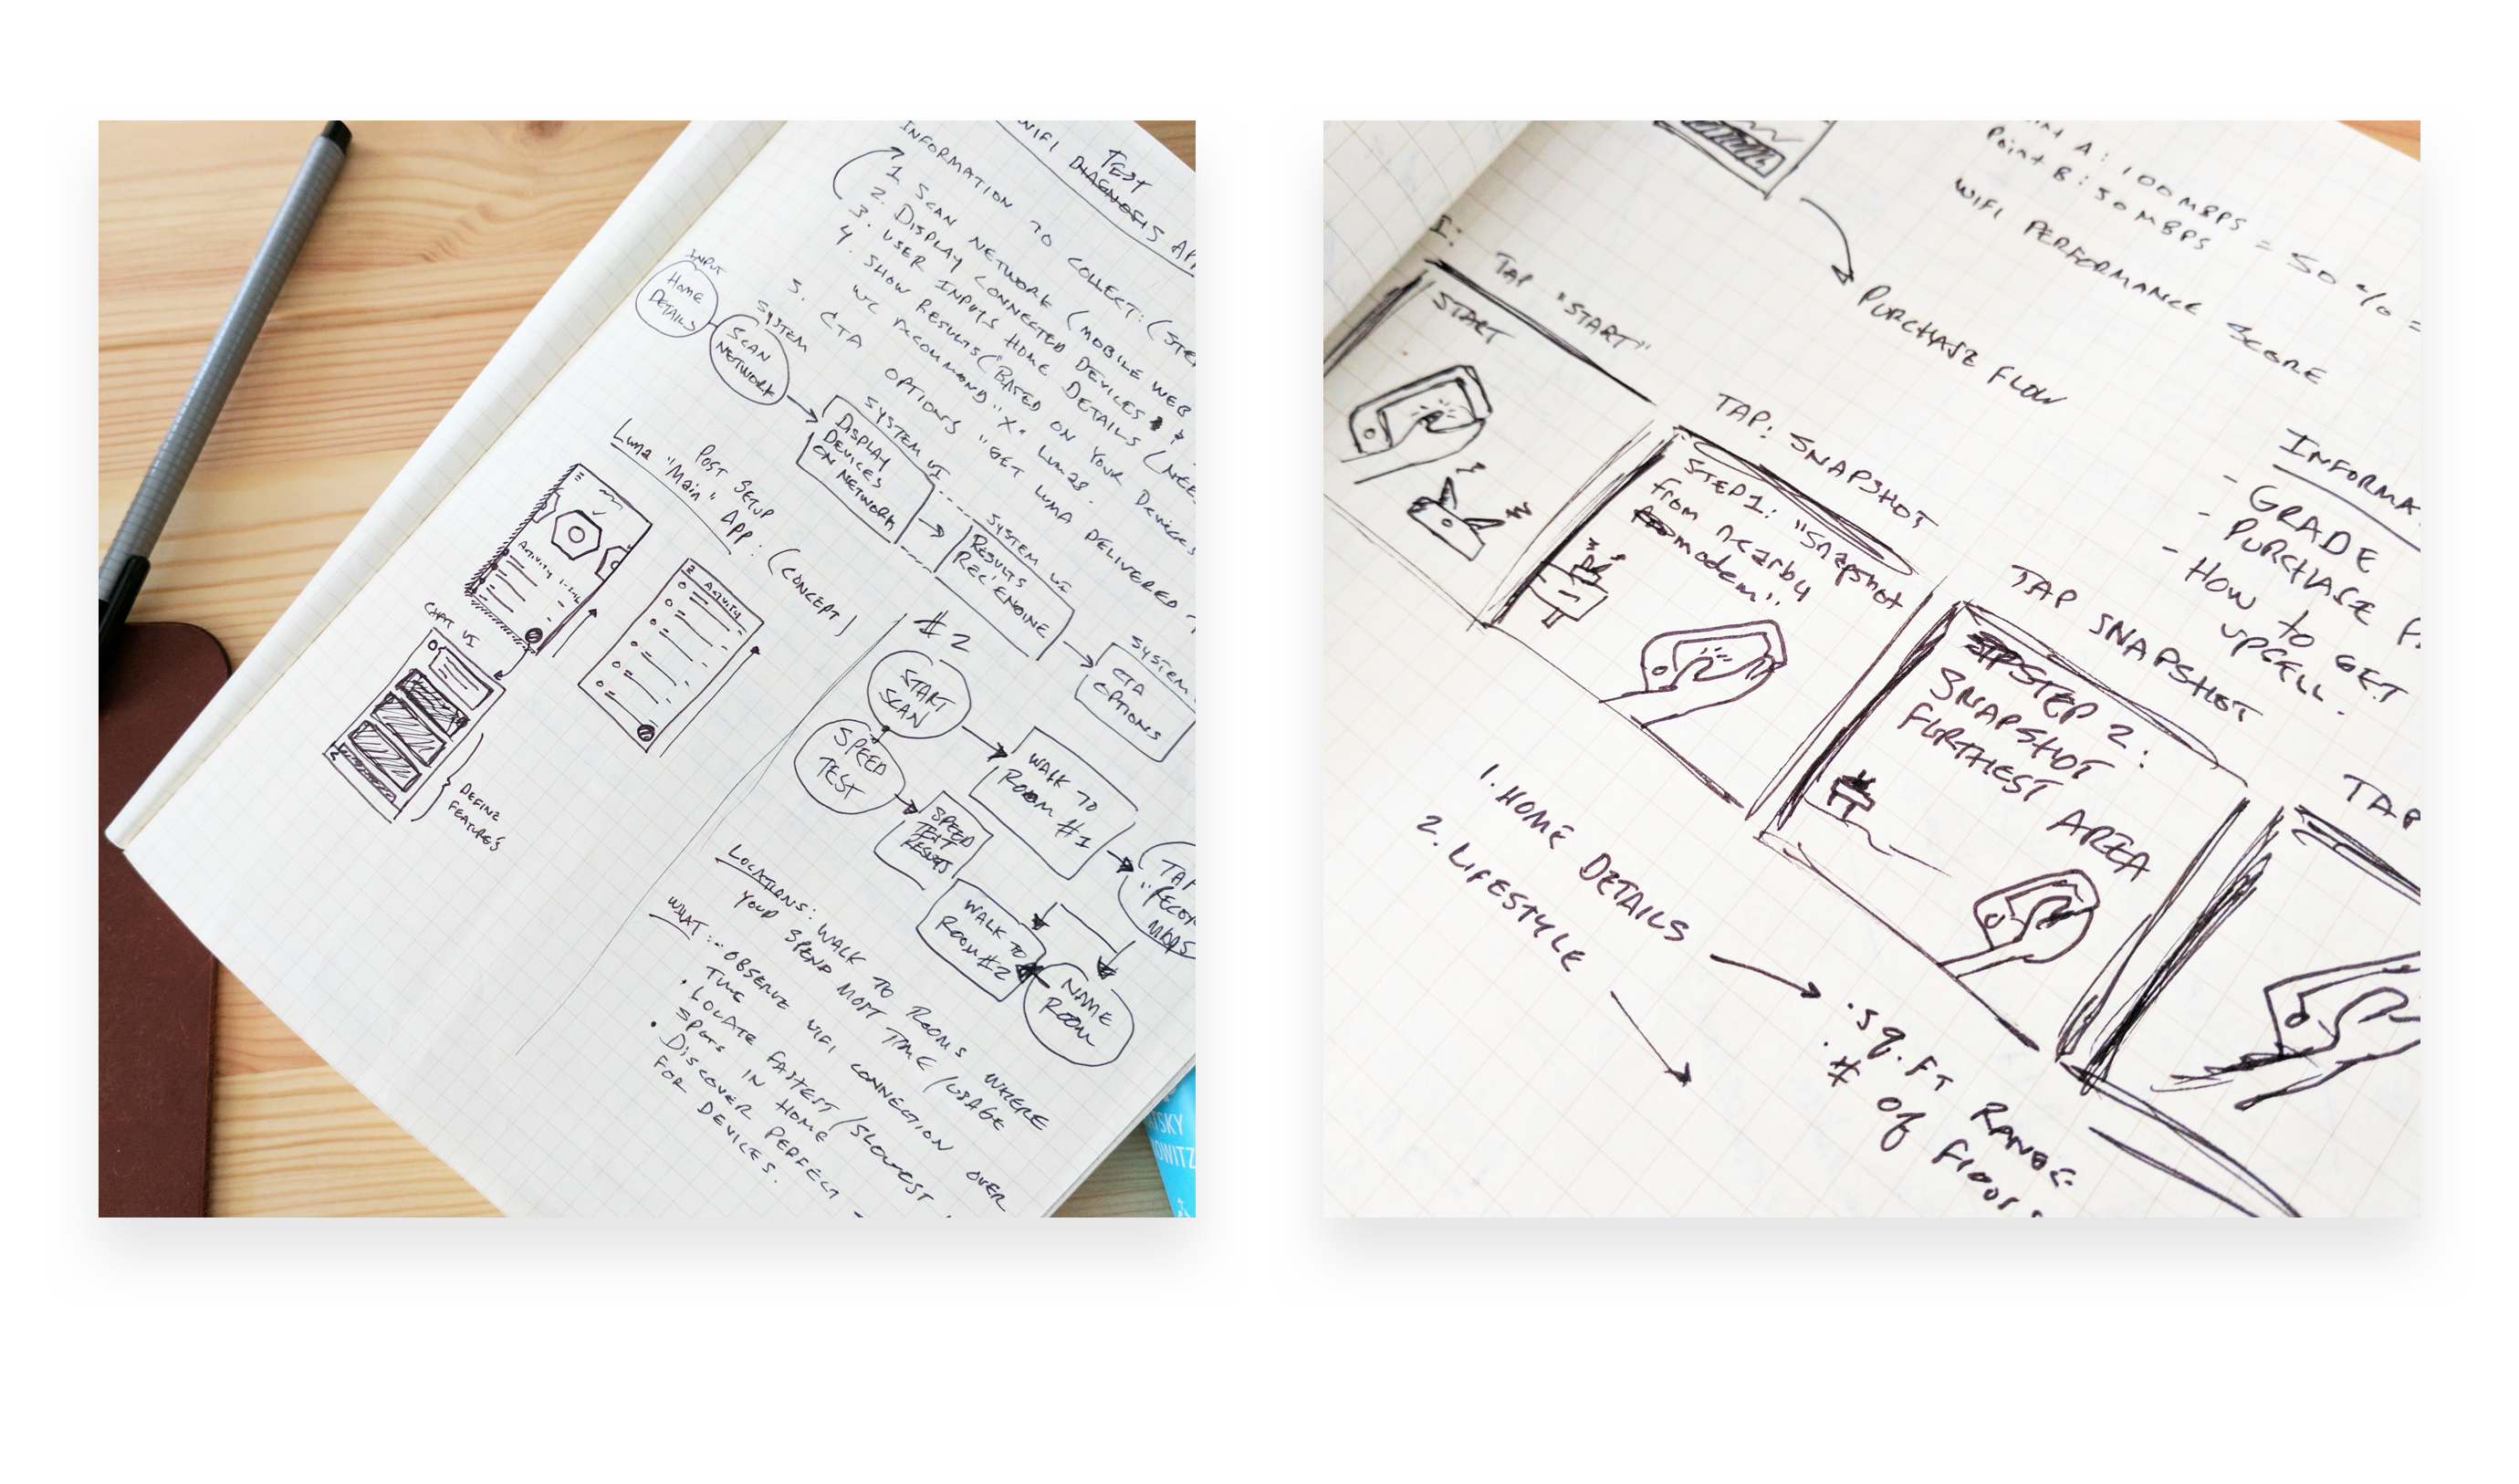 TEST
WIFI DIAGNOSIS APP
INFORMATION TO COLLECT: (STE
1. SCAN NETWORK (MOBILE WEB
2. DISPLAY CONNECTED DEVICES &
3. USER INPUTS HOME DETAILS (NEE
4. SHOW RESULTS ("BASED ON YOUR DEVICES
WE RECOMMEND "X" LUMAS.
5. CTA OPTIONS "GET LUMA DELIVERED
INPUT
HOME
DETAILS
SYSTEM
SCAN
NETWORK
SYSTEM UI
DISPLAY
DEVICES
ON NETWORK
SYSTEM UI
RESULTS
REC ENGINE
SYSTEM
CTA
OPTIONS
POST SETUP
Luma "Main" App: (CONCEPT)
Activity
Activity
CHAT UI
DEFINE
FEATURES
#2
START
SCAN
SPEED
TEST
SPEED
TEST
RESULTS
WALK TO
ROOM #1
TAP
MBPS
WALK TO
ROOM #2
NAME
ROOM
LOCATIONS: WALK TO ROOMS WHERE
YOUR SPEND MOST TIME/USAGE
WHAT: - OBSERVE WIFI CONNECTION OVER
TIME
• LOCATE FASTEST/SLOWEST
SPOTS IN HOME
• DISCOVER PERFECT
FOR DEVICES.
ATSKY
OWITZ
A: 100 MBPS = 50% =
Point B: 50 MBPS
WIFI PERFORMANCE SCORE
PURCHASE FLOW
I:
TAP "START"
START
TAP: SNAPSHOT
STEP 1: "Snapshot
from nearby
modem"
TAP SNAPSHOT
STEP 2:
SNAPSHOT
FURTHEST AREA
TAP
INFORMA
- GRADE
- PURCHASE
- HOW to GET
UPCELL.
1. HOME DETAILS
2. LIFESTYLE
• sq. FT RANGE
• # of Floors